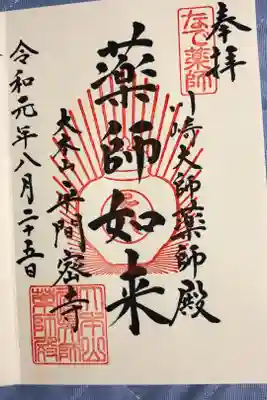 奉拝
なで薬師
川崎大師薬師殿
薬師如来
大本山平間密寺
令和元年八月二十五日